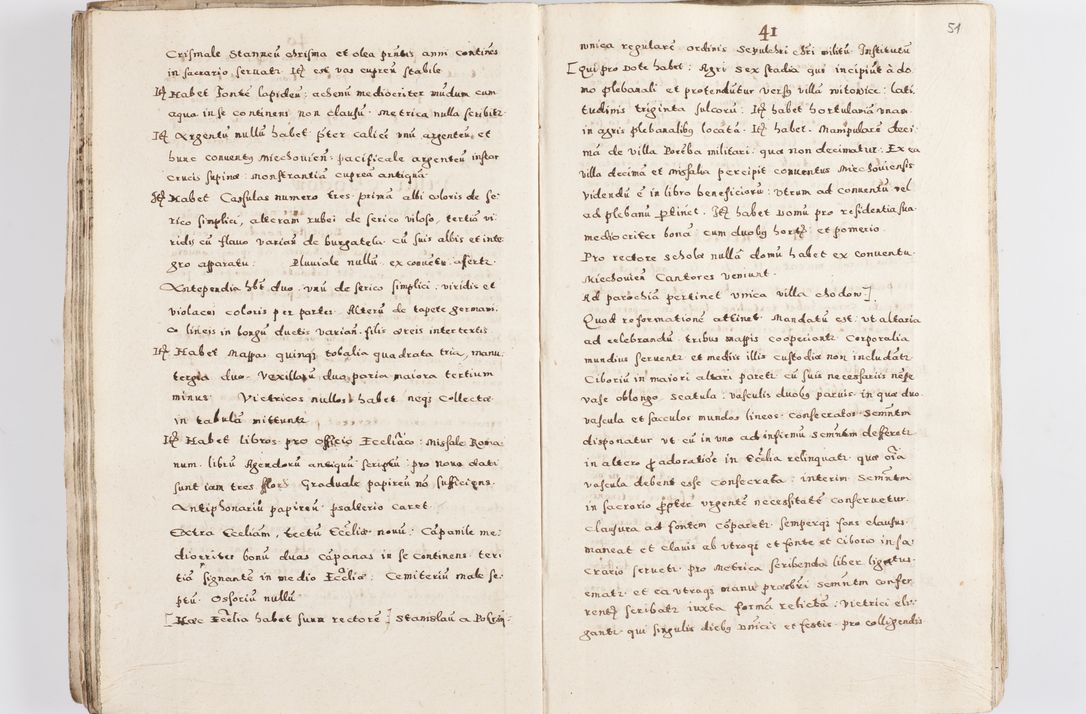 Crismale Stanneũ chrisma et olea pntis anni contines
in sacrario seruat Itẽ est vas cupreũ stabile
Itẽ Habet Fontẽ lapideũ: achenũ mediocriter mũdum cum
aqua in se continens non clausũ. Metrica nulla scribit
Itẽ Argentũ nullũ habet p̃ter calicẽ vnũ argenteũ, et
hunc conuentus Miechouieñ. pacificale argenteũ instar
crucis supinæ: monstrantiã cupreã antiquã.
Itẽ Habet Casulas numero tres primã albi coloris de se
rico simplici, alteram rubei de serico viloso, tertiũ vi
ridis cũ flauo variañ de burgatela cũ suis albis et inte
gro apparatu. Pluuiale nullũ ex conuẽtu afert
Antependia hbt duo. vnũ de serico simplici. viridis et
violacei coloris per partes. Alterũ de tapete germani
co lineis in longũ ductis variañ. filis areis intertextis
Itẽ Habet Mappas quinq̃ tobalia quadrata tria, manu
tergia duo. Vexillorũ duo paria maiora tertium
minus. Vietricos nullos habet neq̃ Collecta
in tabulã mittunt
Itẽ Habet libros pro officio Eccliãco: Missale Roma
num. librũ Agendorũ antiquũ scriptũ: pro nouo dati
sunt iam tres flor Graduale papireũ nõ sufficiens.
Antiphonariũ papireũ. psalterio caret.
Extra Eccliam, tectũ Ecclia nouũ: Cãpanile me
diocriter bonũ duas cãpanas in se continens ter
tiã signantẽ in medio Ecclia: Cemiteriũ male se
ptũ. Ossoriũ nullũ
[Hæc Ecclia habet suum rectorẽ] Stanislaũ a
41
51
unica regulare ordinis Sepulchri Chri militũ Institutũ
[Qui pro Dote habet: Agri sex stadia qui incipiũt à do
mo plebanali et protendũtur versus villã Witowice: lati
tudinis triginta sulcorũ: Itẽ habet hortulaniã vnam
in agris plebanalibus locatũ. Itẽ habet. Manipularẽ deci
mã de villa Porẽba militari. qua non decimatur. Ex ea
villa decimã et Missalia percipit conuentus Miechouiensis
videndũ ẽ in libro beneficiorũ: Vtrum ad conuentũ vel
ad plebanũ ptinet. Itẽ habet Domũ pro residentia sua
mediocriter bonã cum duobus hortis et pomerio
Pro rectore scholæ nullã domũ habet ex conuentu
Miechouieñ Cantores veniunt.
Ad parochiã pertinet vnica villa chodow].
Quod reformationẽ attinet. Mandatũ est: vt altaria
ad celebrandũ tribus mappis cooperiant Corporalia
mundius seruent et mediis illis custodia non includat
Ciboriũ in maiori altari paret cũ suis necessariis nẽpe
vase oblongo, scatula. vasculis duobus paruis. in quæ duo
vascula et sacculos mundos lineos consecratos Semñtm
disponatur vt cũ in vno ad infirmũ semñtm defferet
in altero p adoratiõe in Ecclia relinquat. quæ oĩa
vascula debent esse consecrata: interim Semñtm
in sacrorio ppter vrgentẽ necessitatẽ conseruetur.
Clausura ad fontem cõparet semperq̃ fons clausus
maneat et clauis ab vtroq̃ et fonte et Ciborio in sa
crario seruet. pro Metrica scribenda liber ligatus
emat. et ea vtraq̃ manu prsbri semñtm confe
rentis scribat iuxta formã relictã: Vietrici eli
gant. qui singulis diebus Dñicis et festis. pro colligendis